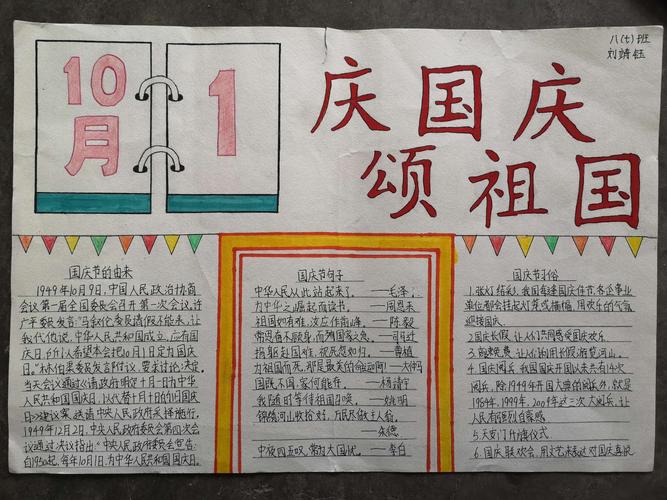 八(七)班
刘靖钰
10月
1
庆国庆
颂祖国
国庆节的由来
1949年10月9日,中国人民政治协商
会议第一届全国委员会召开第一次会议。许
广平委员发言:"马叙伦委员请假不能来,让
我代他说,中华人民共和国成立,应有国
庆日,所以希望本会把10月1日定为国庆
日。"林伯渠委员发言附议,要求讨论决定。
当天会议通过《请政府明定十月一日为中华
人民共和国国庆日,以代替十月十日的旧国庆
日》建议案,送请中央人民政府采择施行。
1949年12月2日,中央人民政府委员会第四次会
议通过决议指出:"中央人民政府委员会宣告:
自1950起,每年10月1日,为中华人民共和国国庆日。
国庆节句子
中华人民从此站起来了。——毛泽
为中华之崛起而读书。——周恩来
祖国如有难,汝应作前锋。——陈毅
常思奋不顾身,而殉国家之急。——司马迁
捐躯赴国难,视死忽如归。——曹植
为祖国而死,那是最美的命运啊!——大仲马
国既不国,家何能存。——杨靖宇
我随时等待祖国召唤。——姚明
锦绣河山收拾好,万民尽做主人翁。
——朱德
中夜四五叹,常为大国忧。——李白
国庆节习俗
1.张灯结彩,我国每逢国庆佳节,各企事业
单位都会挂起灯笼或横幅,用欢乐的气氛
迎接国庆。
2.国庆长假,让人们共同感受国庆欢乐。
3.高速免费,让人们利用长假游览河山。
4.国庆阅兵,我国国庆开国以来共有14次
阅兵,除1949年开国大典的阅兵外,就是
1984年、1999年、2009年这三次大阅兵,让
人民有强烈自豪感。
5.天安门升旗仪式。
6.国庆联欢会,用文艺来表达对国庆喜悦